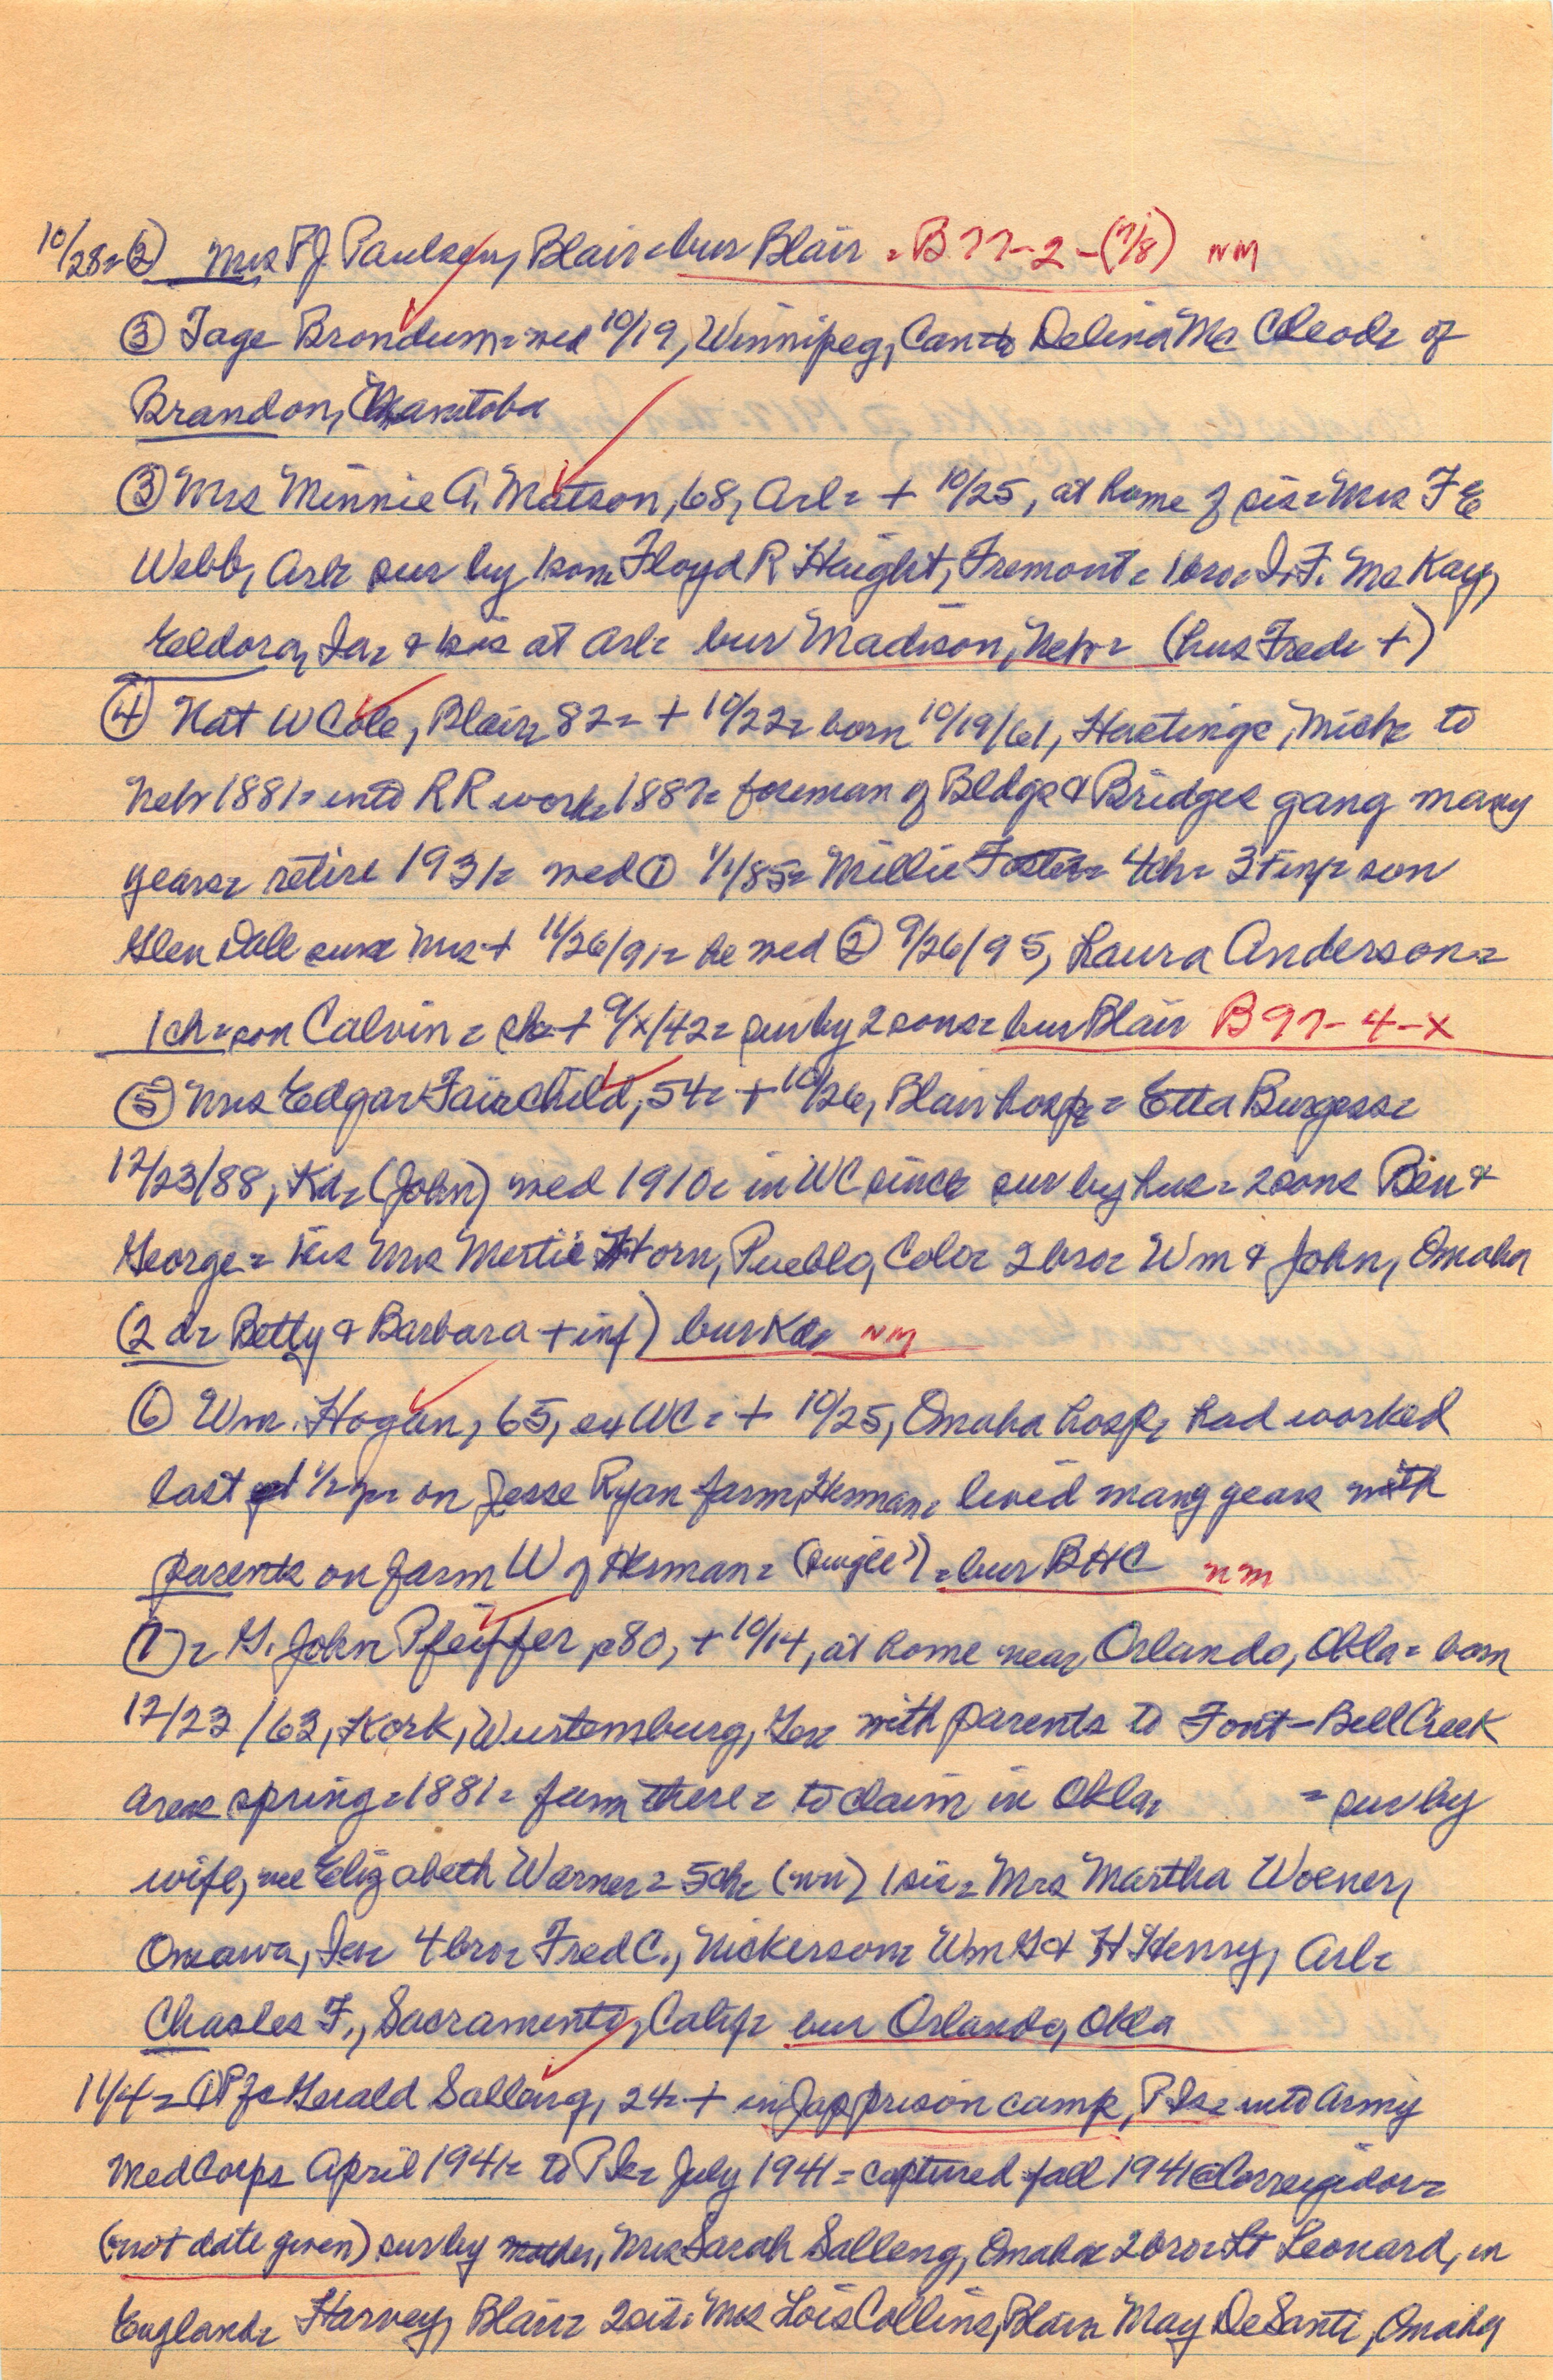 10/28= (2) Mrs P.J. Paulsen, Blair= bur Blair = B 77-2-(7/8) NM
(3) Tage Brondum= wed 10/19, Winnipeg, Can= to Delina Mc Cleod= of
Brandon, Manitoba
(3) Mrs Minnie A. Matson, 68, Arl= + 10/25, at home of sis= Mrs F E
Webb, Arl= sur by 1 son= Floyd R Haight, Fremont= 1 bro= I.F. McKay,
Eldora, Ia= & 1 sis at Arl= bur Madison, Nebr= (hus Fred= +)
(4) Nat W Cole, Blair= 82= + 10/22= born 10/19/61, Hastings, Mich= to
Nebr 1881= into RR work= 1887= foreman of Bldgs & Bridges gang many
years= retire 1931= wed (1) 1/1/85= Millie Foster= 4ch= 3+inf= son
Glen Dall sur= Mrs + 11/26/91= he wed (2) 9/26/95, Laura Anderson=
1ch= son Calvin= she + 9/x/42= sur by 2 sons= bur Blair B 97-4-x
(5) Mrs Edgar Fairchild, 54= + 10/26, Blair hosp= Etta Burgess=
12/23/88, Kd= (John) wed 1910= in WC since= sur by hus= 2 sons Ben &
George= 1 sis Mrs Mertie Horn, Pueblo, Colo= 2 bro= Wm & John, Omaha
(2 d= Betty & Barbara + inf) bur Kd= NM
(6) Wm. Hogan, 65, ex WC= + 10/25, Omaha hosp= had worked
last 1/2 yr= on Jesse Ryan farm, Herman= lived many years with
parents on farm W of Herman= (single?) = bur BHC nm
(7)= G. John Pfeiffer, 80, + 10/14, at home near Orlando, Okla= born
12/23/63, Kork, Wurtemburg, Ger= with parents to Font-Bell Creek
area spring= 1881= farm there= to claim in Okla= = sur by
wife, nee Elizabeth Warner= 5ch= (nn) 1 sis= Mrs Martha Woener,
Onawa, Ia= 4 bro= Fred C., Nickerson= Wm G & H Henry, Arl=
Charles F., Sacramento, Calif= bur Orlando, Okla
11/4= (1) Pfc Gerald Salleng, 24= + in Jap prison camp, P.Is= into Army
Med Corps April 1941= to P Is= July 1941= captured fall 1941 @ Corregidor=
(not date given) sur by mother, Mrs Sarah Salleng, Omaha= 2 bro= Lt Leonard, in
England= Harvey, Blair= 2 sis= Mrs Lois Collins, Blair= May De Santi, Omaha